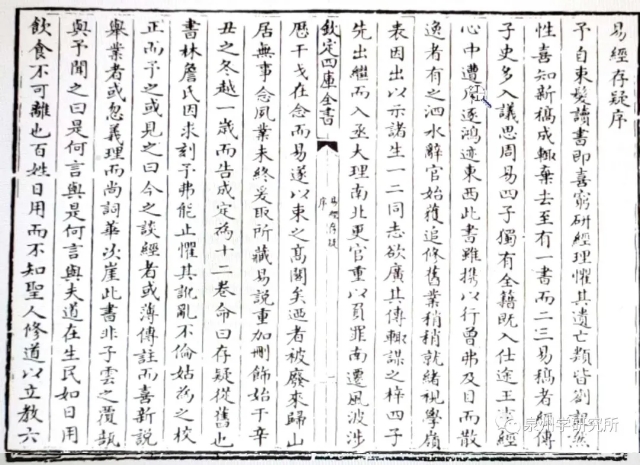 易經存疑序
予自束髮讀書即喜窮研經理懼其遺亡類皆劄記然
性喜知新稿成輒棄去至有一書而二三易稿者師傳
子史多入議思周易四子獨有全籍既入仕途王事經
心中遭逐鴻迹東西此書雖携以行曾弗及目而散
逸者有之泗水辭官始獲追修舊業稍稍就緒視學嶺
表因出以示諸生一二同志欲廣其傳輒謀之梓四子
先出繼而入丞大理南北更官重以負罪南遷風波涉
欽定四庫全書
易經存疑
序
歷干戈在念而易遂以束之高閣矣廼者被廢來歸山
居無事念夙業未終爰取所藏易說重加刪飾始于辛
丑之冬越一歲而告成定為十二卷命曰存疑從舊也
書林詹氏因求刻予弗能止懼其訛亂不倫姑為之校
正而予之或見之曰今之談經者或薄傳註而喜新說
舉業者或忽義理而尚詞華次崖此書非子雲之覆瓿
與予聞之曰是何言與是何言與夫道在生民如日用
飲食不可離也百姓日用而不知聖人修道以立教六
泉州学研究所